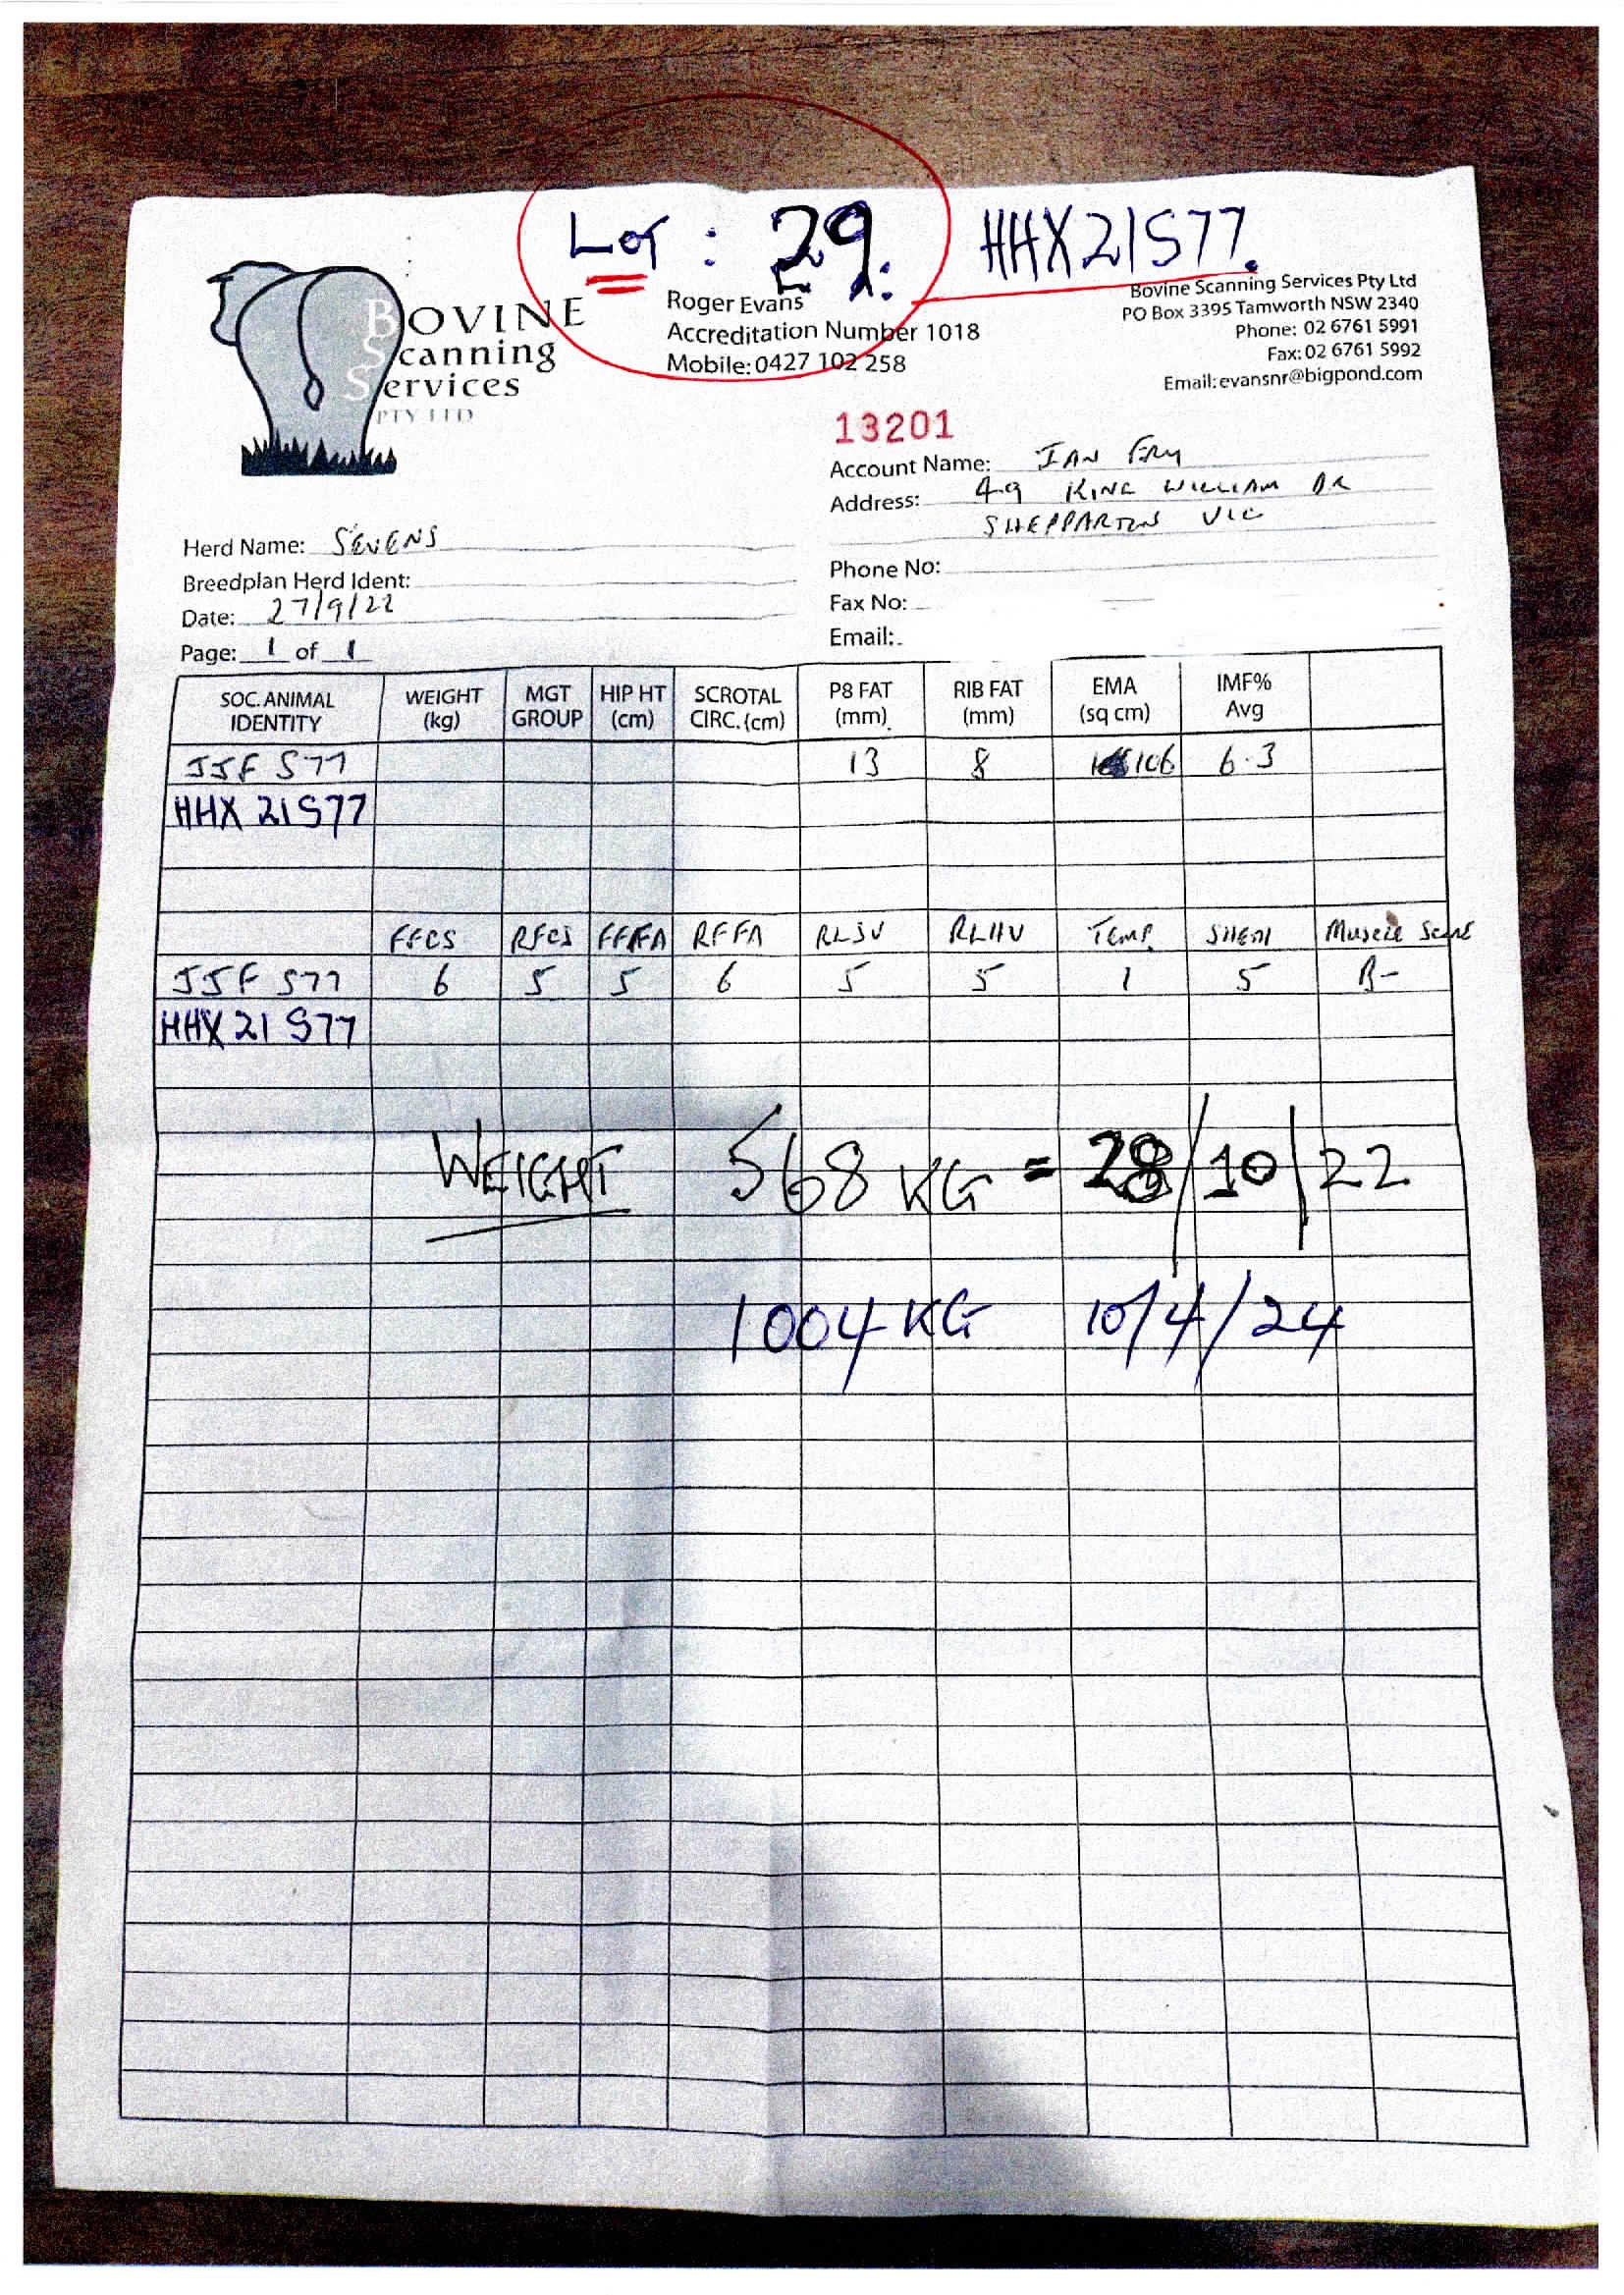 Lot : 29. HHX21S77.
BOVINE
Scanning
Services
PTY LTD
Roger Evans
Accreditation Number 1018
Mobile: 0427 102 258
Bovine Scanning Services Pty Ltd
PO Box 3395 Tamworth NSW 2340
Phone: 02 6761 5991
Fax: 02 6761 5992
Email: evansnr@bigpond.com
13201
Account Name: IAN FRY
Address: 49 KING WILLIAM DR
SHEPPARTON VIC
Herd Name: SEVENS
Breedplan Herd Ident:
Date: 27/9/22
Page: 1 of 1
Phone No:
Fax No:
Email:
SOC. ANIMAL IDENTITY WEIGHT (kg) MGT GROUP HIP HT (cm) SCROTAL CIRC. (cm) P8 FAT (mm) RIB FAT (mm) EMA (sq cm) IMF% Avg
JJF S77 13 8 106 6.3
HHX 21S77
FFCS RFCS FFFA RFFA RLSV RLHV TEMP. SHEATH Muscle Score
JJF S77 6 5 5 6 5 5 1 5 B-
HHX 21 S77
WEIGHT 568 KG = 28/10/22
1004 KG 10/4/24